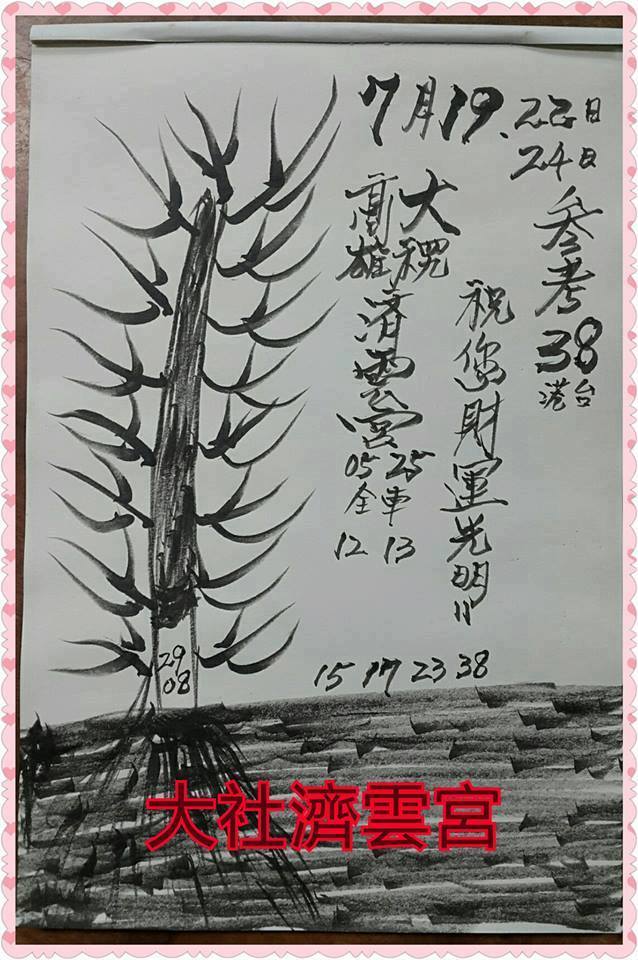 7月19.22日
24日
參考38
港台
祝您財運光明
高雄
大
済雲宮
05 25
全車
12 13
15 17 23 38
29
08
大社濟雲宮